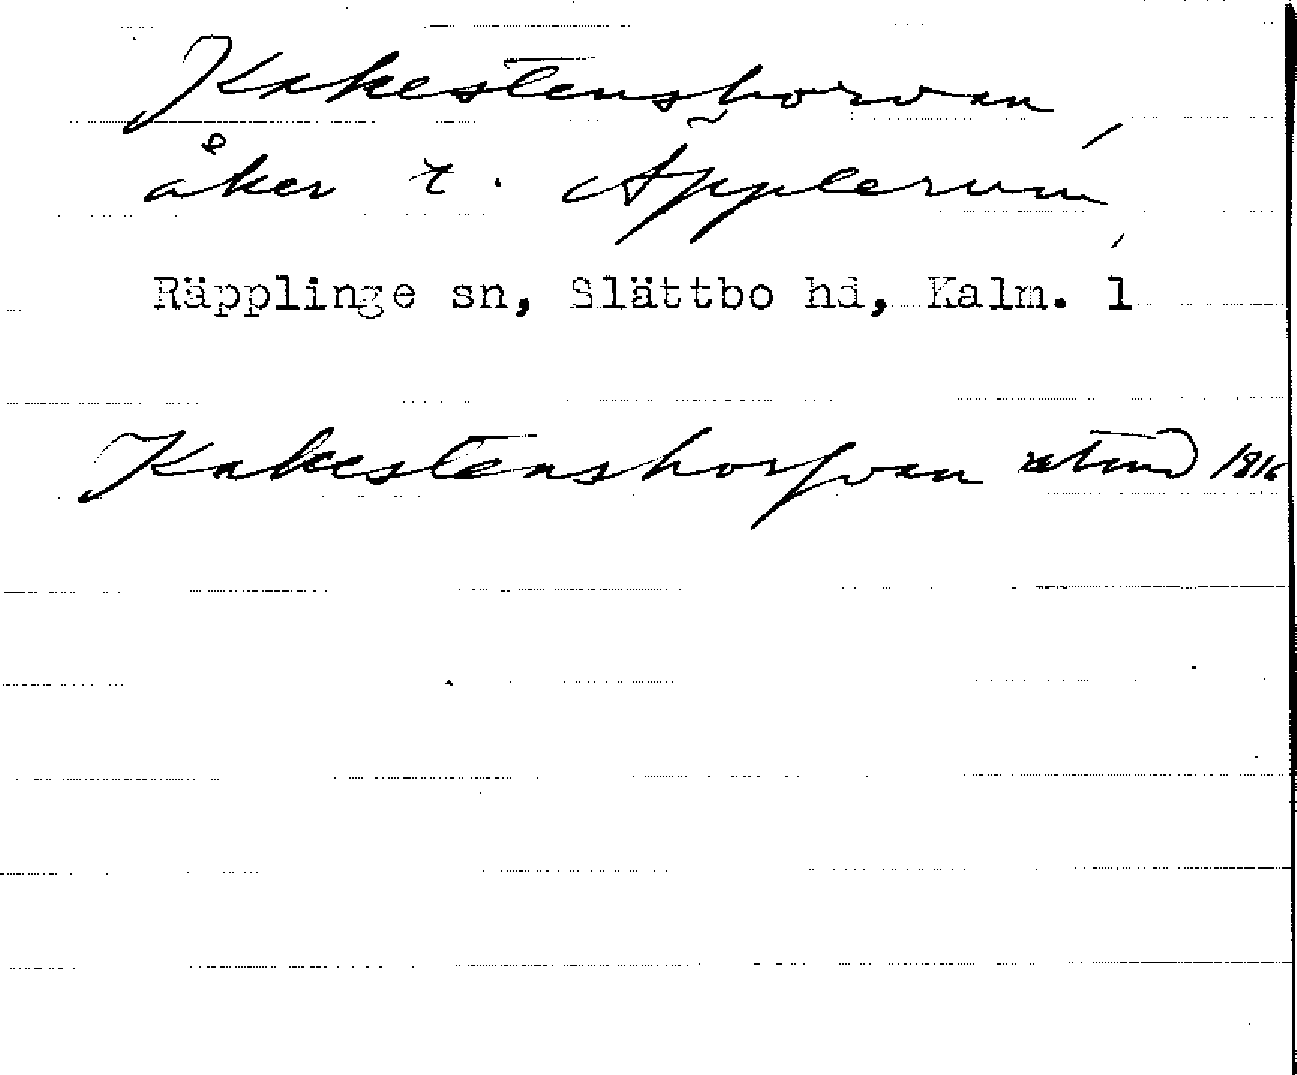 Kakestenshorvan
åker t. Äpplerum,
Räpplinge sn, Slättbo hd, Kalm. l
Kakestenshorfvan 1816